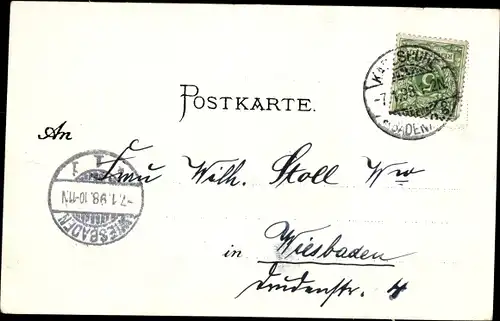 KARLSRUHE
7.1.98.
(BADEN)
5
POSTKARTE.
An
Frau Wilh. Stoll Ww
WIESBADEN
-7.1.98.10-11N.
1
in Wiesbaden
Drudenstr. 4